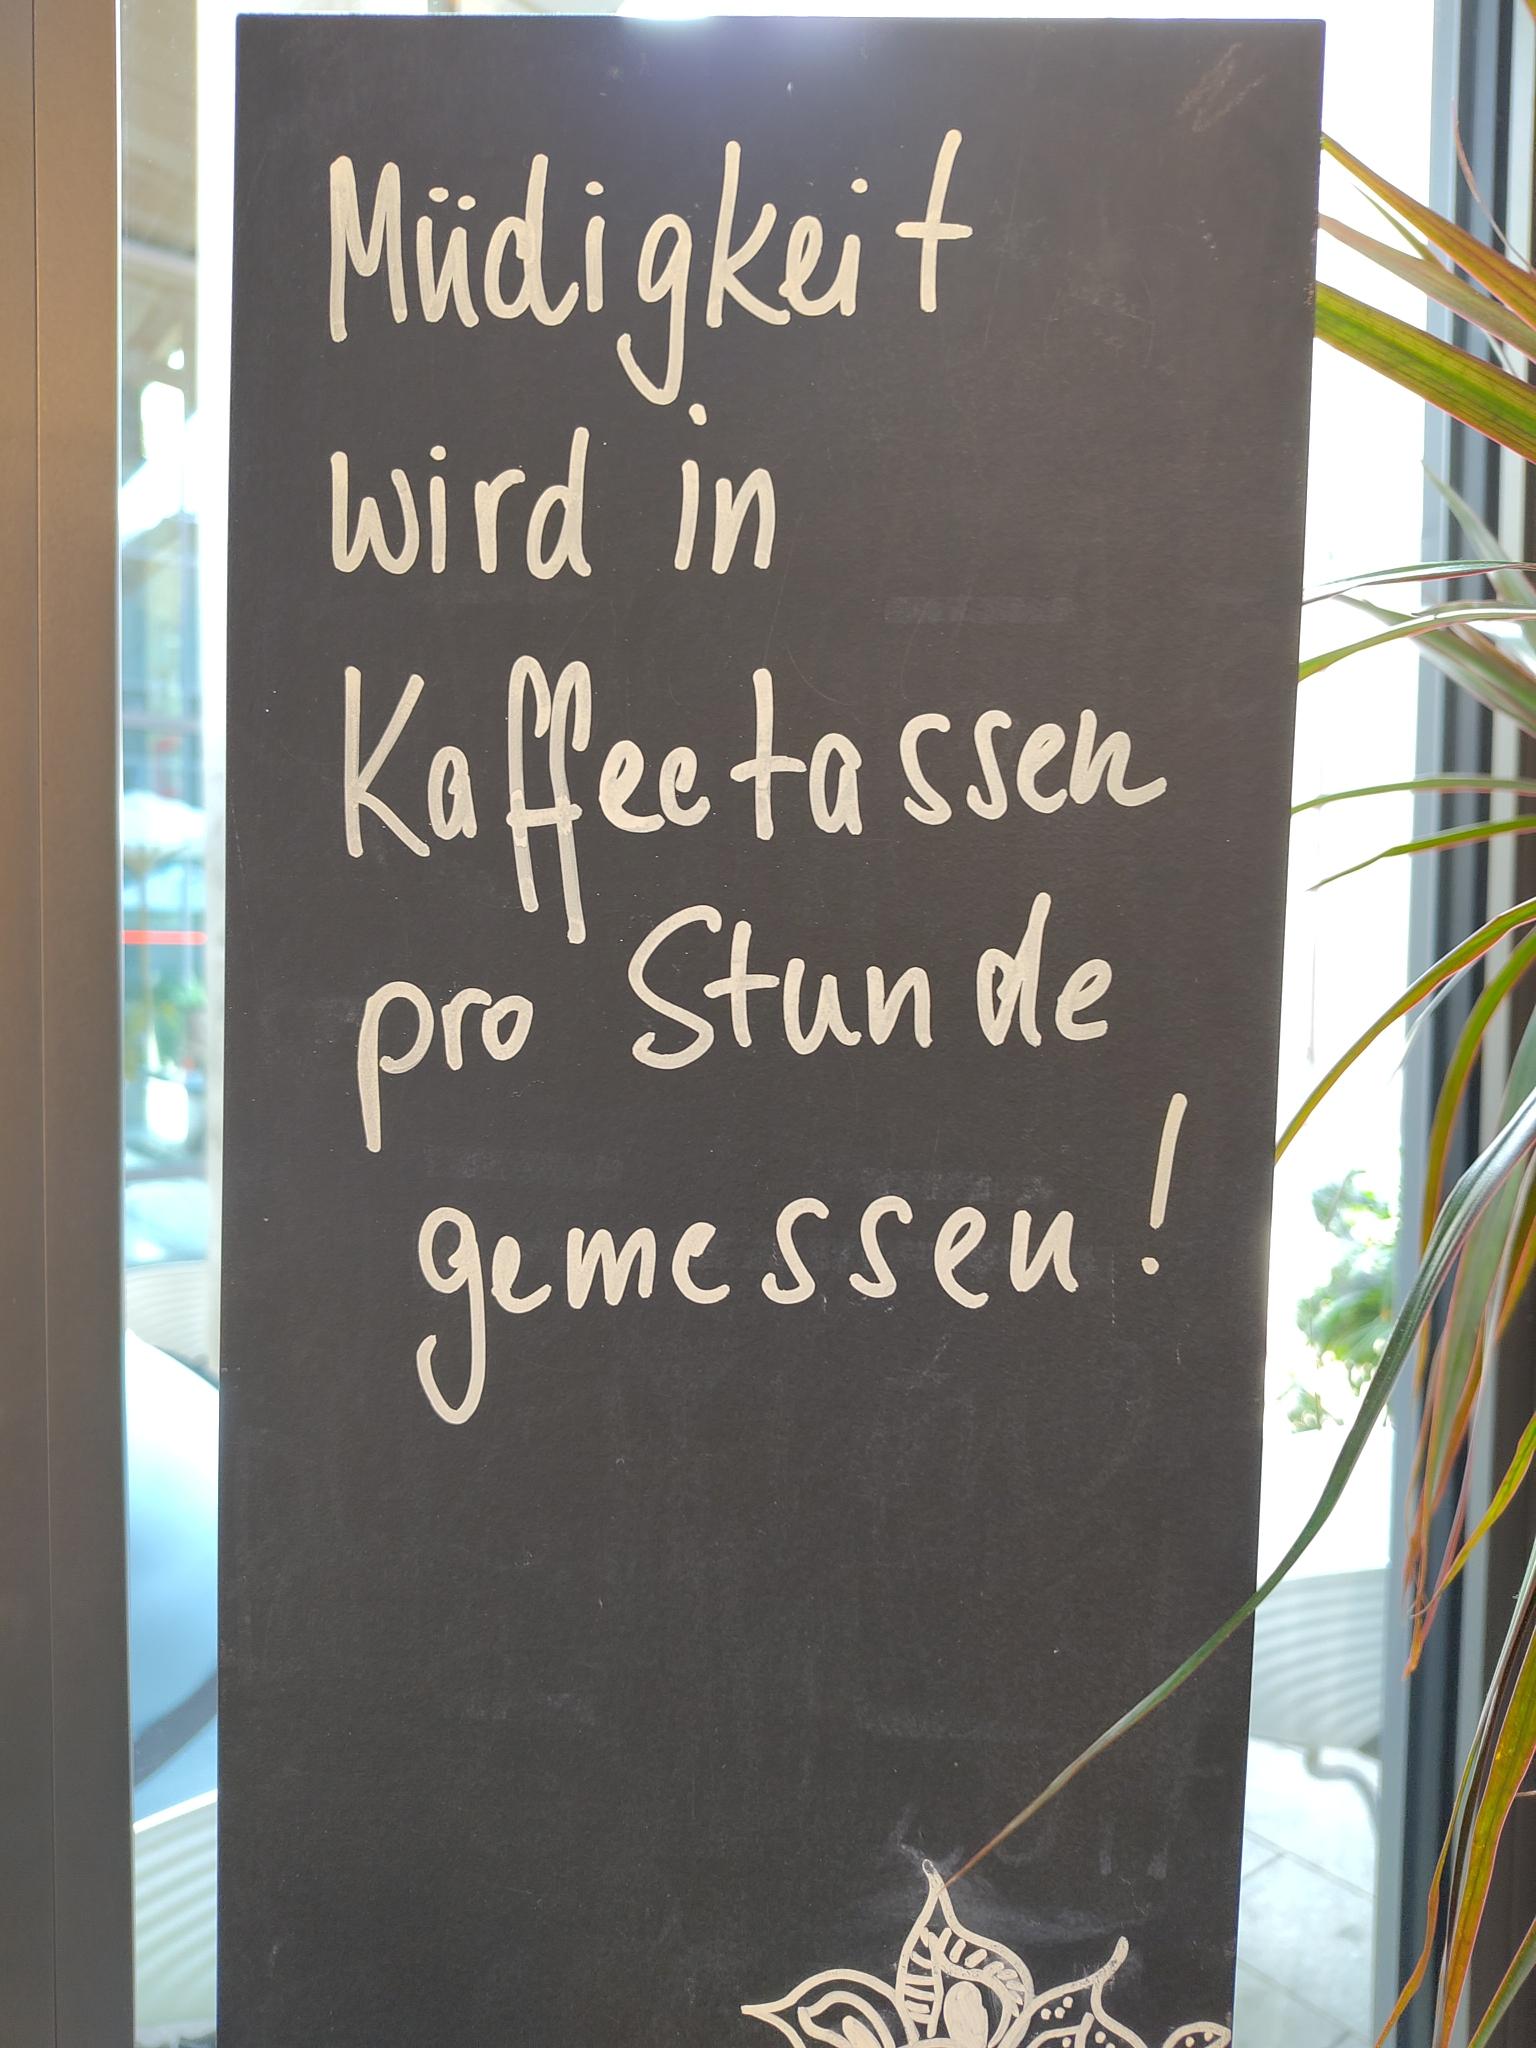 Müdigkeit
wird in
Kaffeetassen
pro Stunde
gemessen!